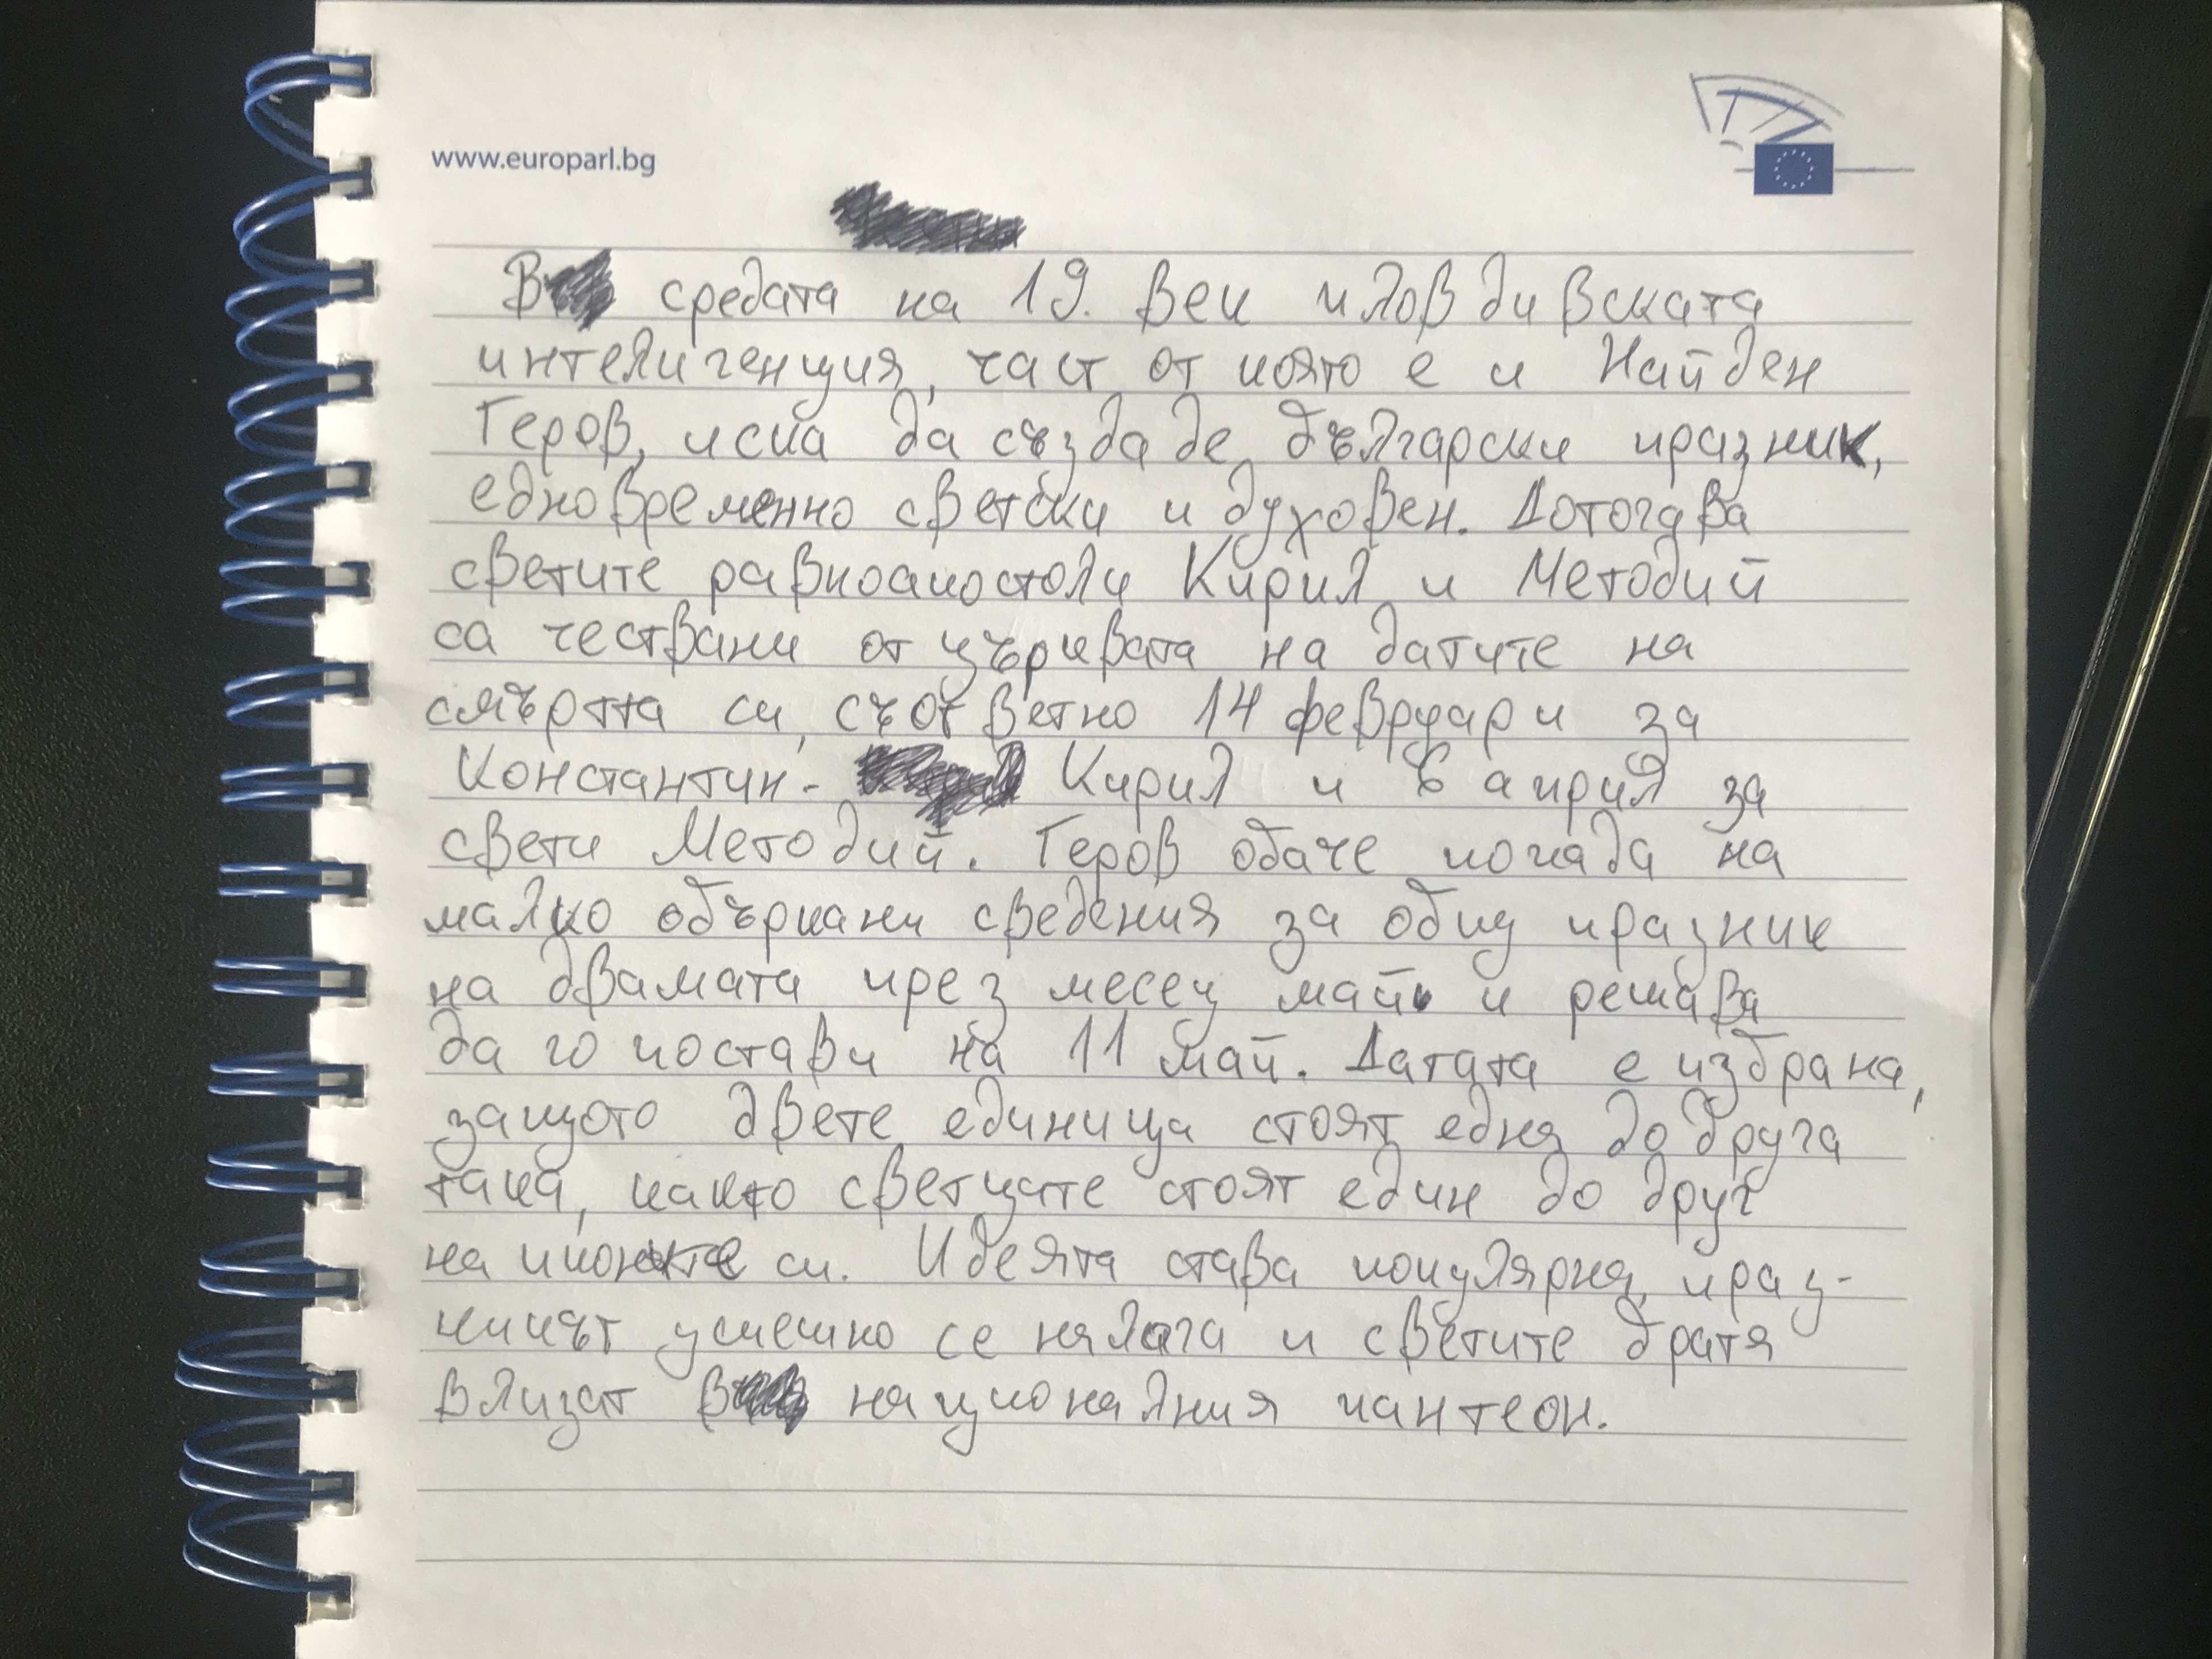 www.europarl.bg
В средата на 19. век пловдивската
интелигенция, част от която е и Найден
Геров, иска да създаде български празник,
едновременно светски и духовен. Дотогава
светите равноапостоли Кирил и Методий
са чествани от църквата на датите на
смъртта си, съответно 14 февруари за
Константин- Кирил и 6 април за
свети Методий. Геров обаче попада на
малко объркани сведения за общ празник
на двамата през месец май и решава
да го постави на 11 май. Датата е избрана,
защото двете единица стоят една до друга
така, както светците стоят един до друг
на иконите си. Идеята става популярна, праз-
никът успешно се налага и светите братя
влизат в националния пантеон.